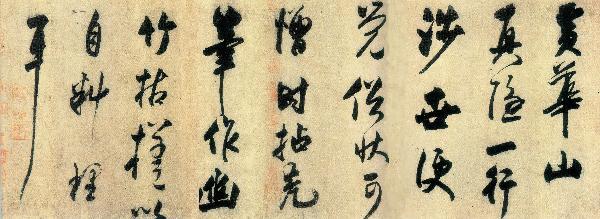 黄華山
真隐一行
涉世便
覺俗状可
憎时拈秃
筆作幽
竹枯槎以
自料理
耳